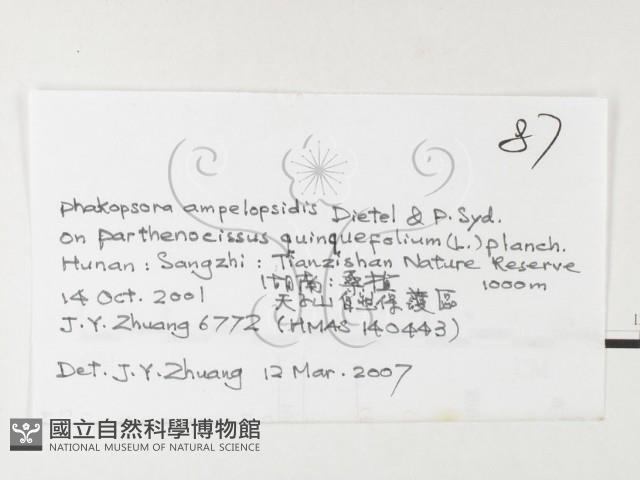 87
Phakopsora ampelopsidis Dietel & P. Syd.
on Parthenocissus quinquefolium (L.) planch.
Hunan : Sangzhi : Tianzishan Nature Reserve
湖南 : 桑植 1000m
14 Oct. 2001 天子山自然保護區
J. Y. Zhuang 6772 (HMAS 140443)
Det. J. Y. Zhuang 12 Mar. 2007
國立自然科學博物館
NATIONAL MUSEUM OF NATURAL SCIENCE